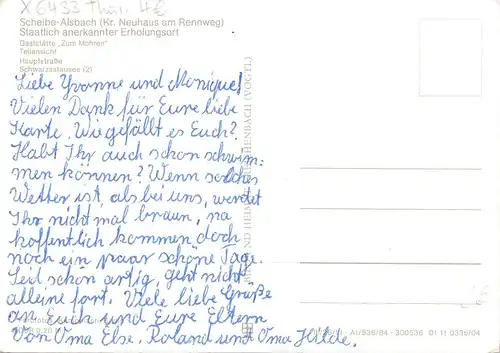 X 6433 Thür. 4€
Scheibe-Alsbach (Kr. Neuhaus am Rennweg)
Staatlich anerkannter Erholungsort
Gaststätte „Zum Mohren"
Teilansicht
Hauptstraße
Schwarzastausee (2)
Liebe Yvonne und Monique!
Vielen Dank für Eure liebe
Karte. Wie gefällt es Euch?
Habt Ihr auch schon schwim=
men können? Wenn solches
Wetter ist, als bei uns, werdet
Ihr nicht mal braun, na
hoffentlich kommen doch
noch ein paar schöne Tage.
Seid schön artig, geht nicht
alleine fort. Viele liebe Grüße
an Euch und Eure Eltern
von Oma Else, Roland und Oma Hilde.
BILD UND HEIMAT REICHENBACH (VOGTL)
A1/536/84 300536 01 11 0335/04